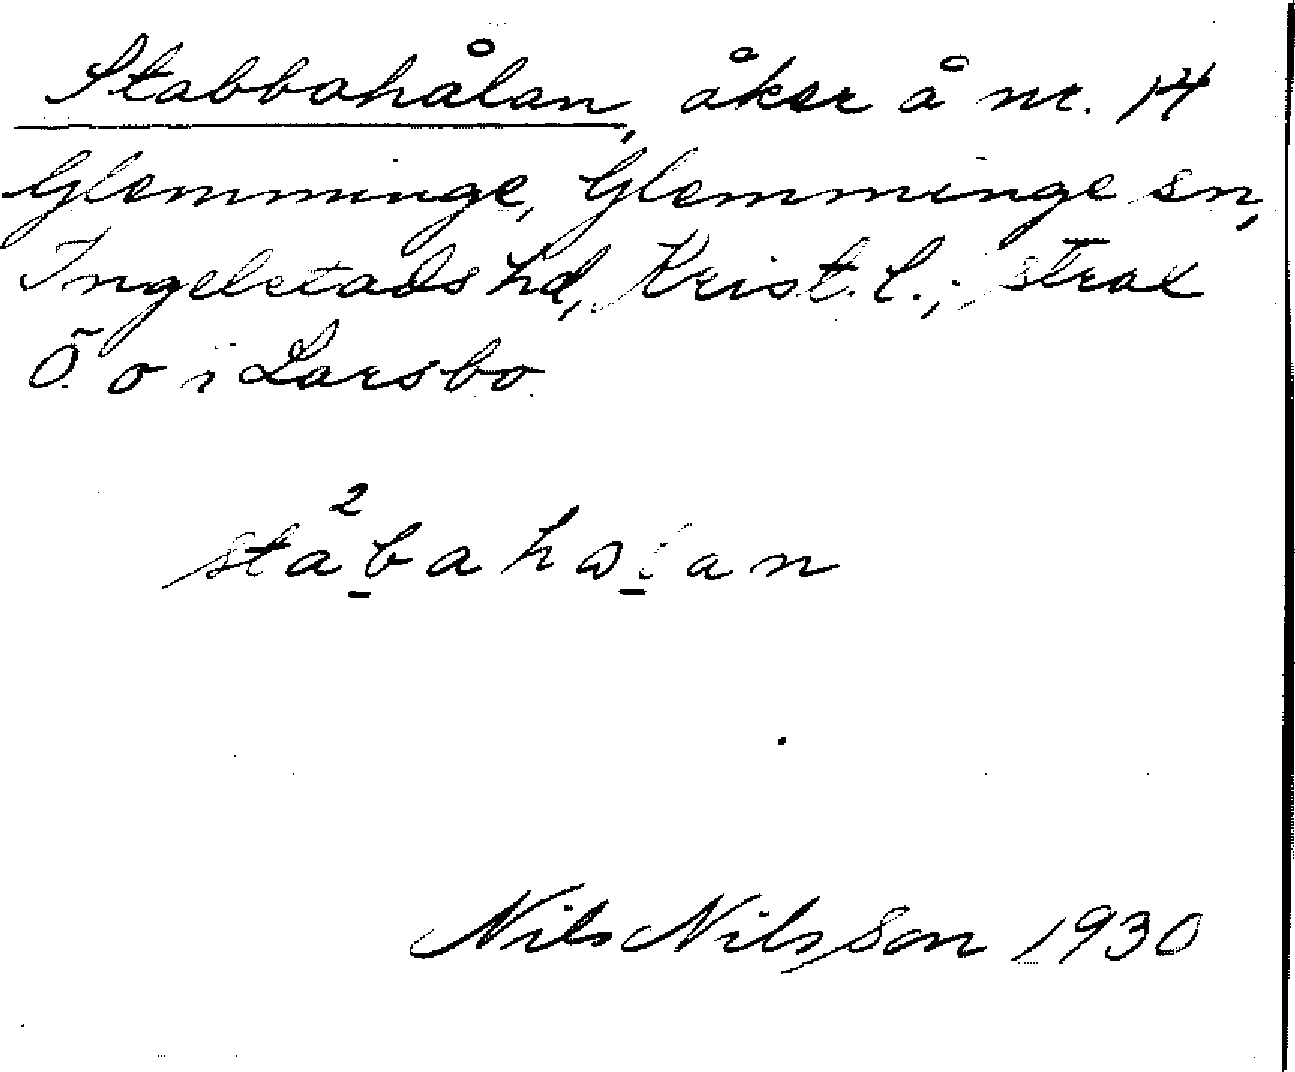 Stabbahålan, åker å nr. 14
Glemminge, Glemminge sn,
Ingelstads hd, Krist. l.; strax
Ö. o i Larsbo.
sta²bahɷlan
Nils Nilsson 1930